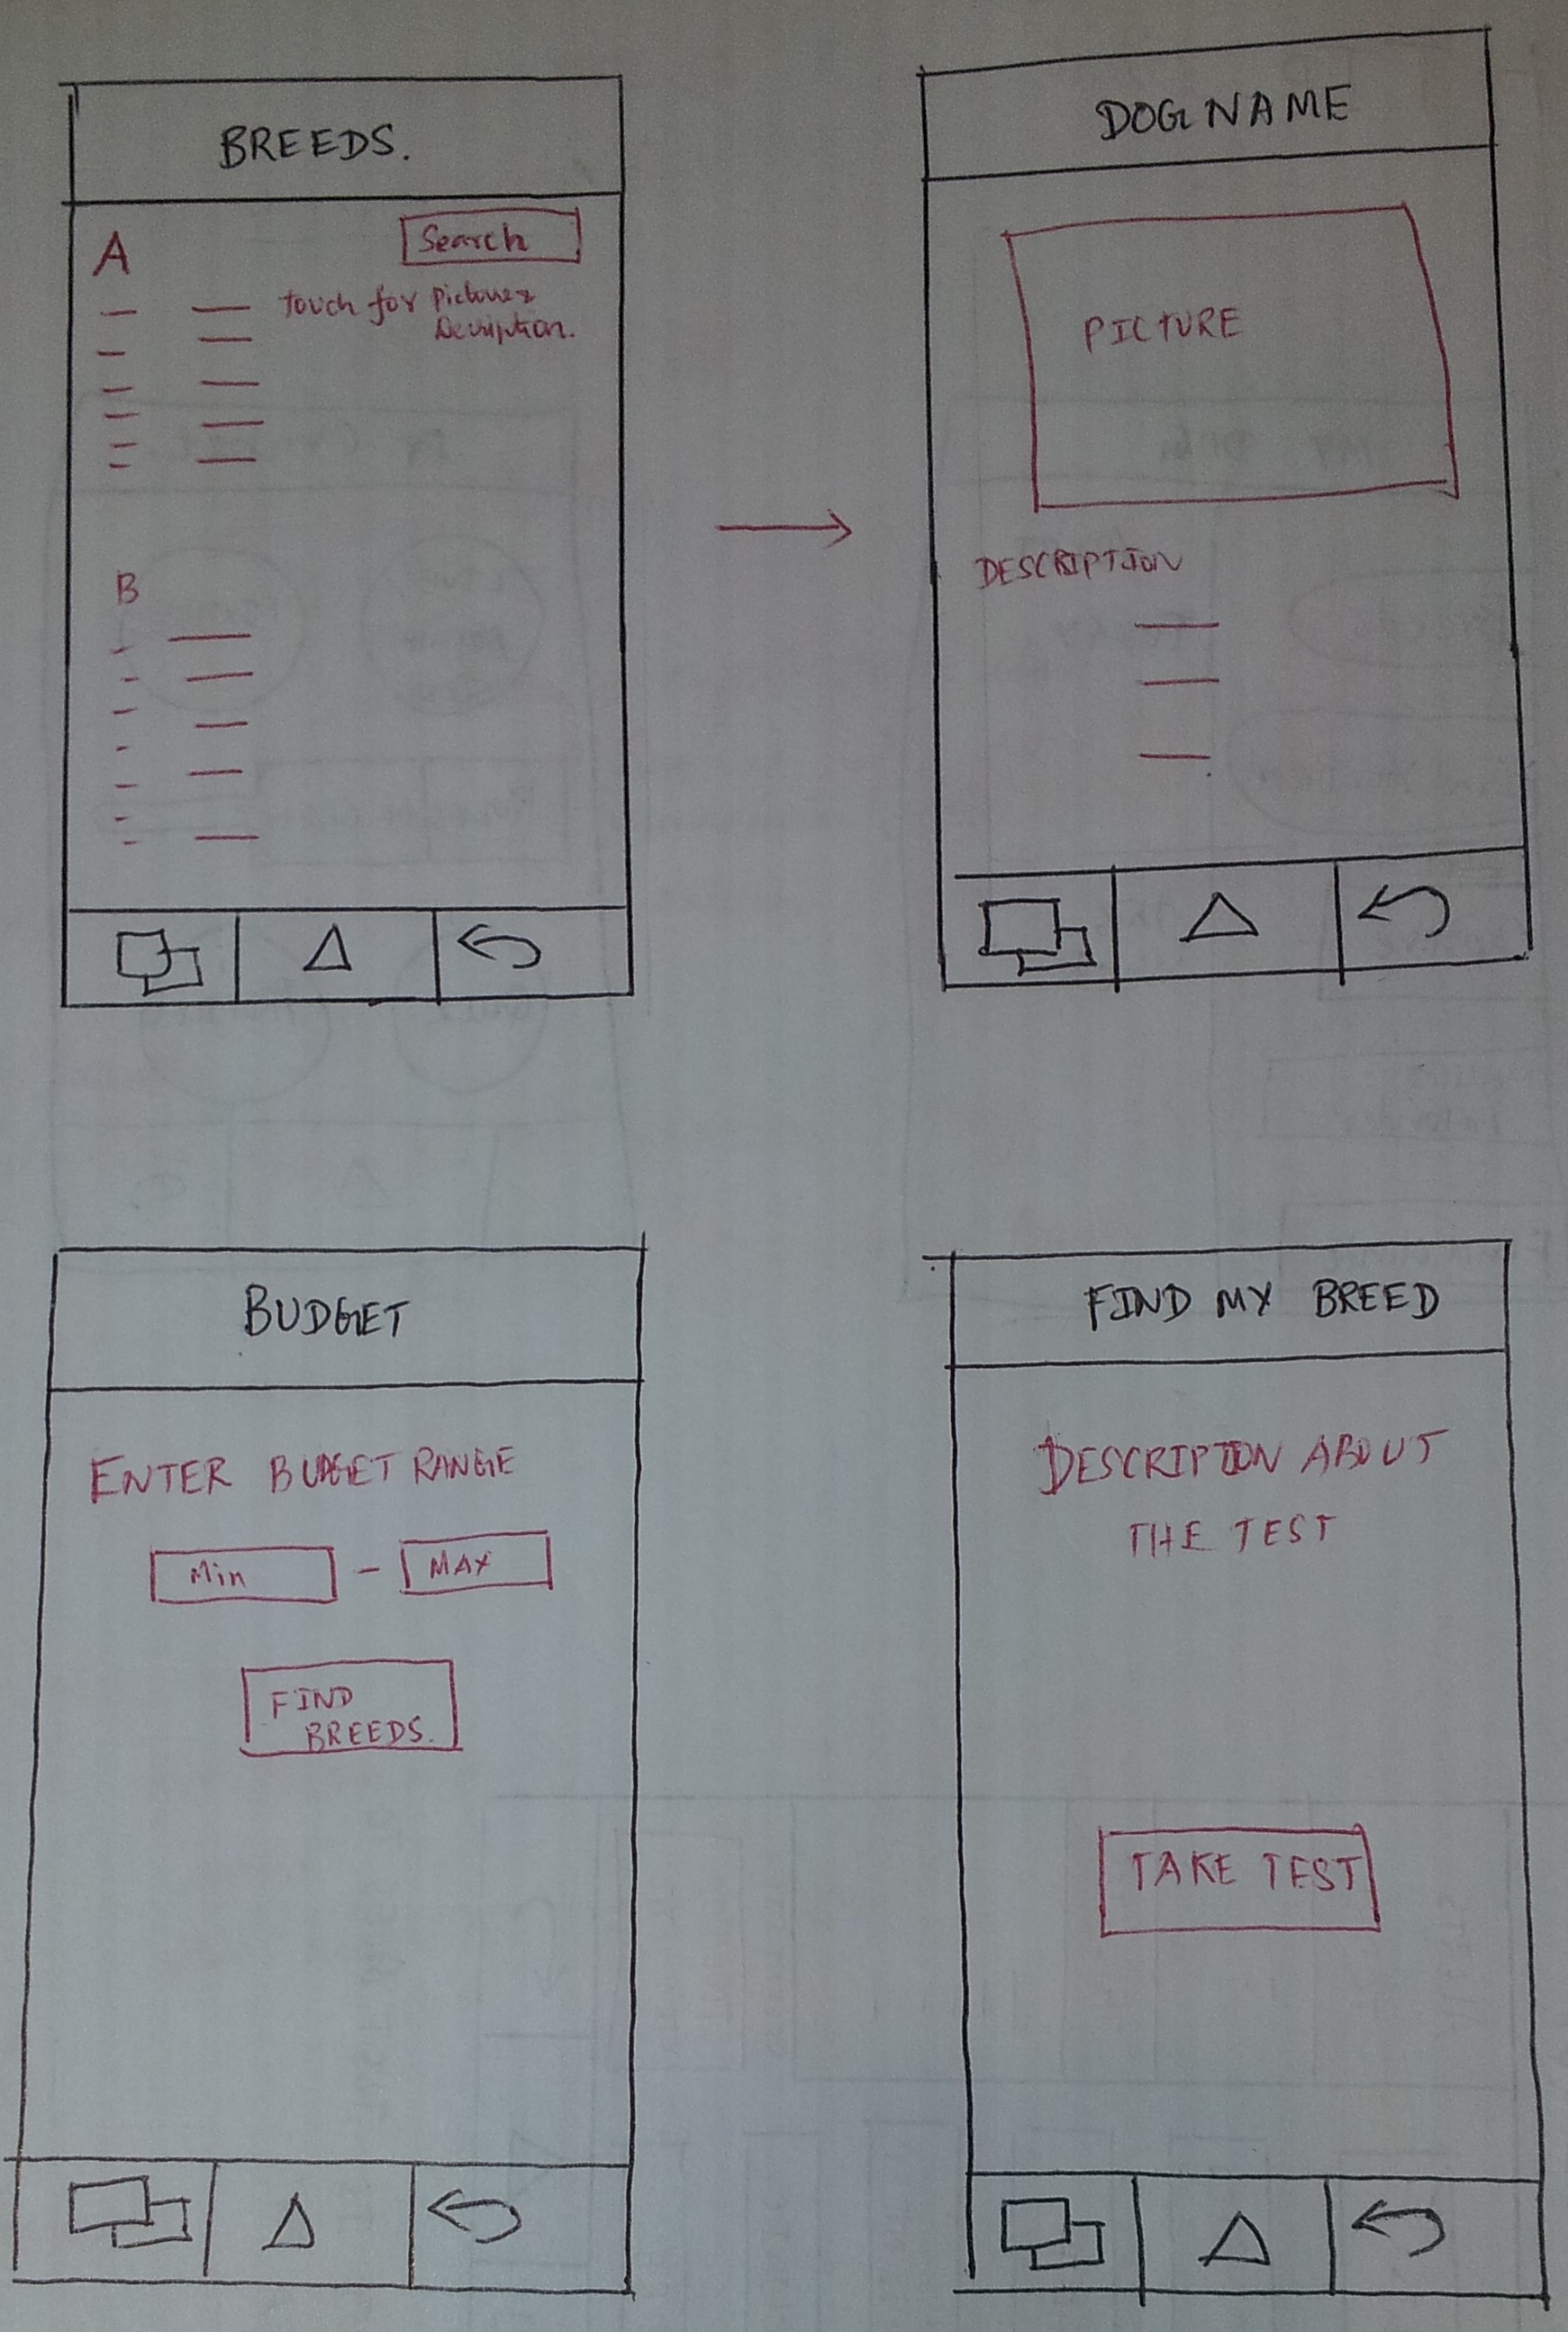 BREEDS.
Search
A
touch for Picture &
Description.
B
DOG NAME
PICTURE
DESCRIPTION
BUDGET
ENTER BUDGET RANGE
Min - MAX
FIND
BREEDS.
FIND MY BREED
DESCRIPTION ABOUT
THE TEST
TAKE TEST